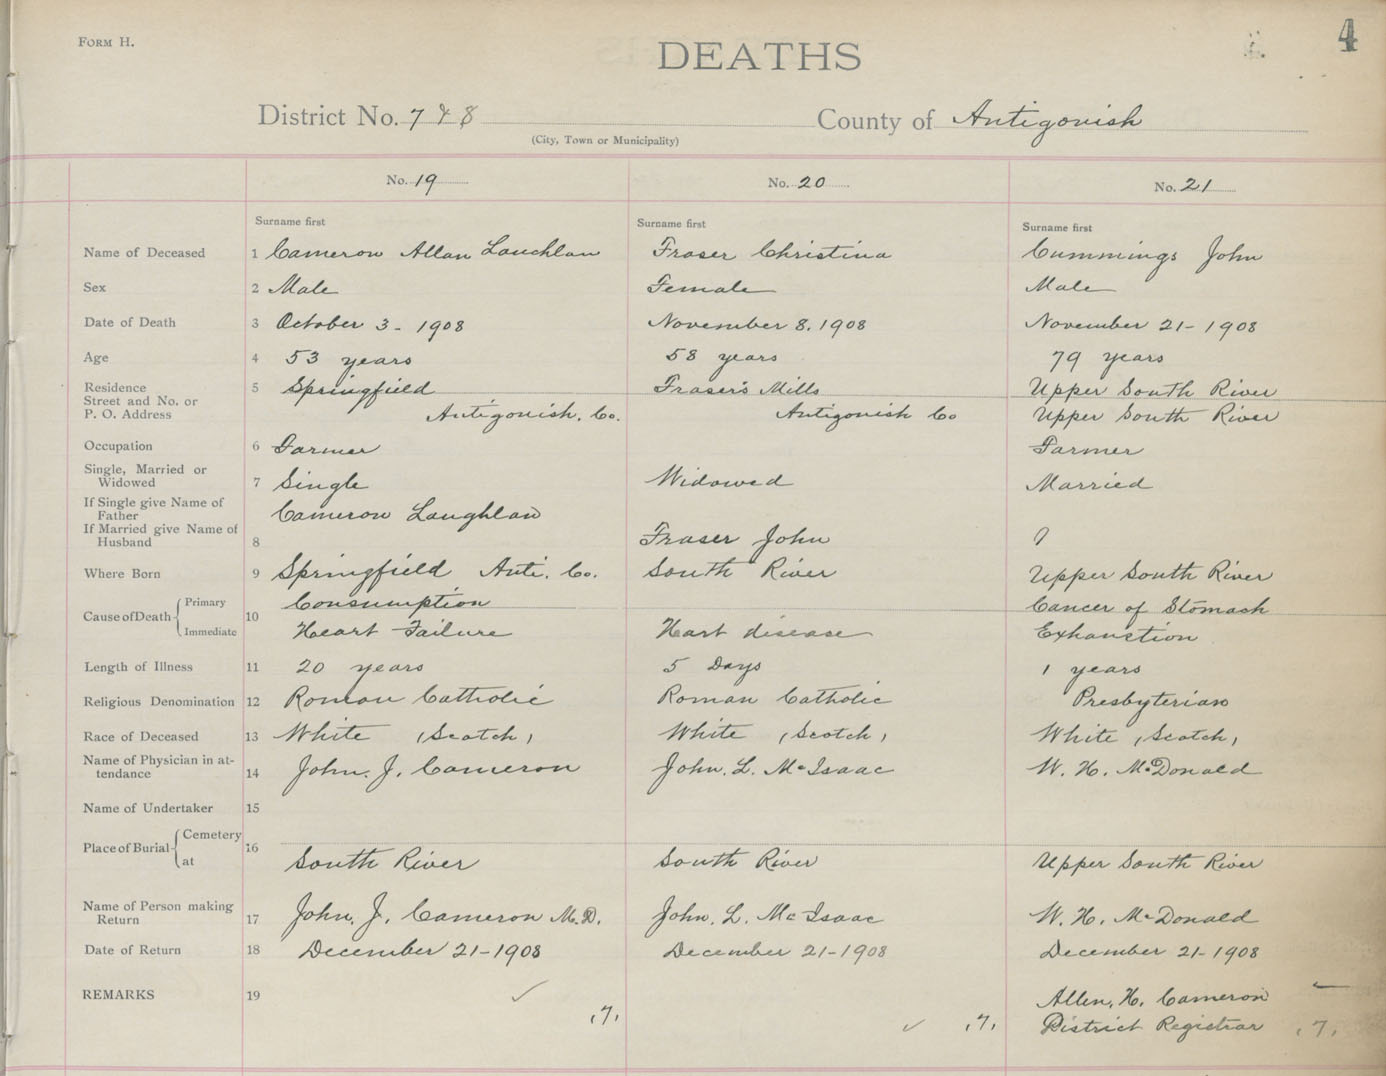 FORM H.
4
DEATHS
District No. 7 & 8
County of Antigonish
(City, Town or Municipality)
No. 19
No. 20
No. 21
Surname first
Surname first
Surname first
Name of Deceased 1 Cameron Allan Lauchlan
Fraser Christina
Cummings John
Sex 2 Male
Female
Male
Date of Death 3 October 3 - 1908
November 8, 1908
November 21 - 1908
Age 4 53 years
58 years
79 years
Residence 5 Springfield
Fraser's Mills
Upper South River
Street and No. or
P. O. Address
Antigonish. Co.
Antigonish Co
Upper South River
Occupation 6 Farmer
Farmer
Single, Married or
Widowed 7 Single
Widowed
Married
If Single give Name of
Father
Cameron Laughlan
If Married give Name of
Husband 8
Fraser John
Where Born 9 Springfield Anti. Co.
South River
Upper South River
Cause of Death Primary
Consumption
Cancer of Stomach
10
Immediate
Heart Failure
Hart disease
Exhaustion
Length of Illness 11 20 years
5 Days
1 years
Religious Denomination 12 Roman Catholic
Roman Catholic
Presbyterian
Race of Deceased 13 White (Scotch)
White (Scotch)
White (Scotch)
Name of Physician in at-
tendance 14 John. J. Cameron
John. L. McIsaac
W. H. McDonald
Name of Undertaker 15
Place of Burial Cemetery
16
at
South River
South River
Upper South River
Name of Person making
Return 17 John. J. Cameron M.D.
John. L. McIsaac
W. H. McDonald
Date of Return 18 December 21 - 1908
December 21 - 1908
December 21 - 1908
REMARKS 19
Allen. H. Cameron
District Registrar
(7)
(7)
(7)